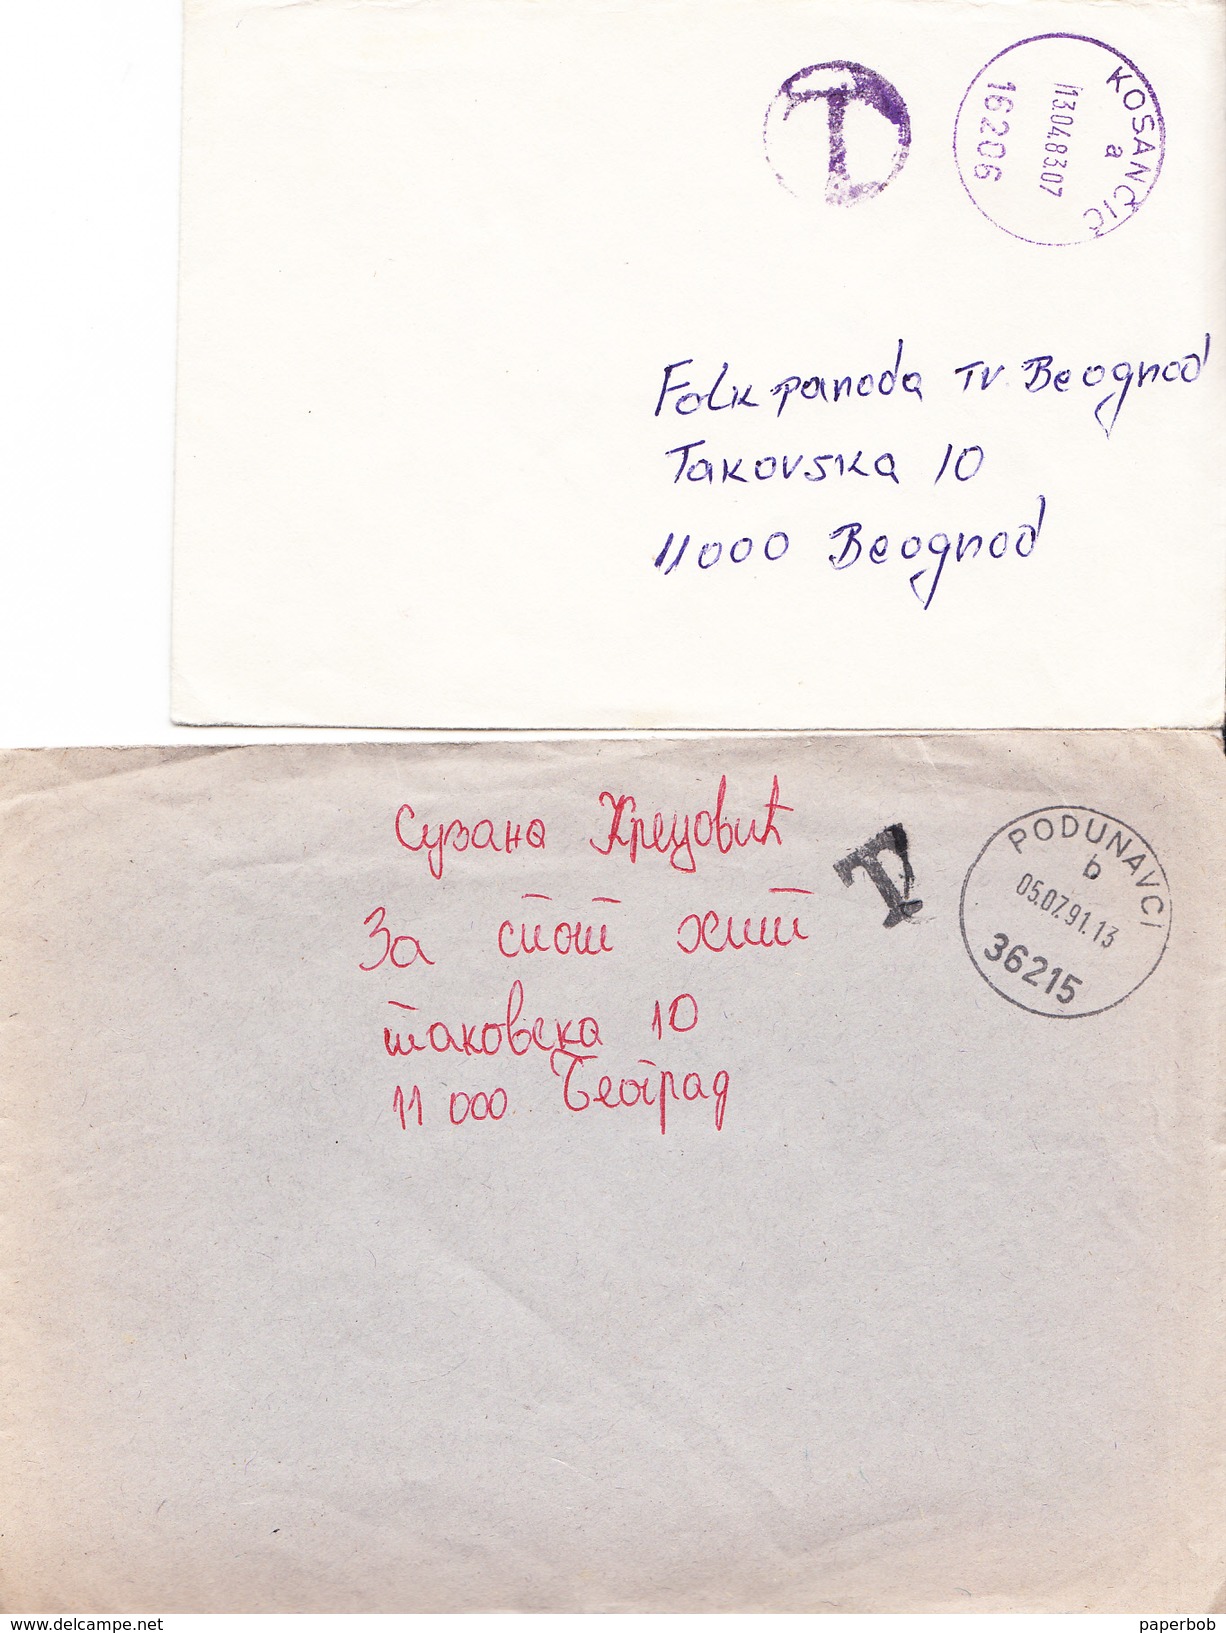 T
KOSANČIĆ
a
13.04.83.07
16206
Folk parada TV Beograd
Takovska 10
11000 Beograd
Сузана
За спот хит
таковска 10
11 000 Београд
T
PODUNAVCI
b
05.07.91.13
36215
delcampe.net
paperbob